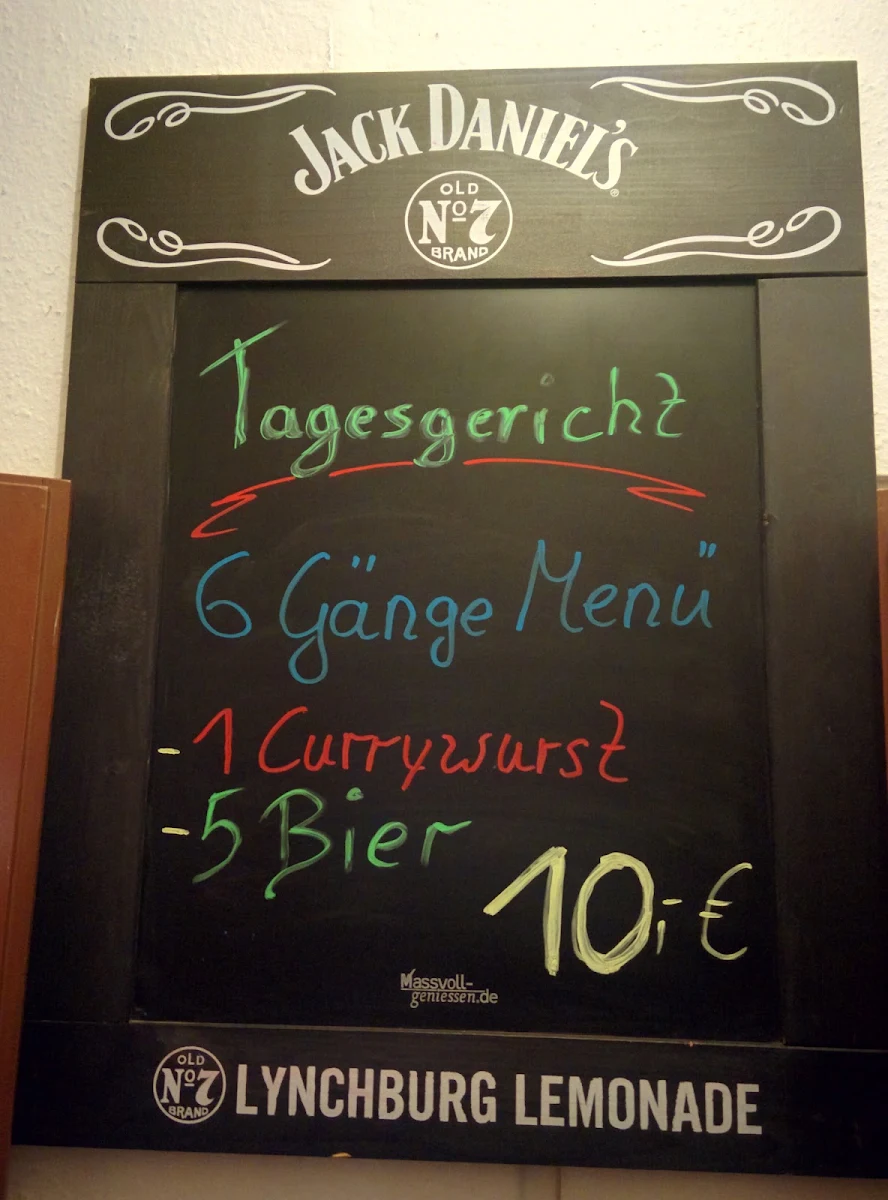 JACK DANIEL'S®
OLD
Nº7
BRAND
Tagesgericht
6 Gänge Menü
- 1 Currywurst
- 5 Bier
10,- €
Massvoll-
geniessen.de
OLD
Nº7
BRAND
LYNCHBURG LEMONADE